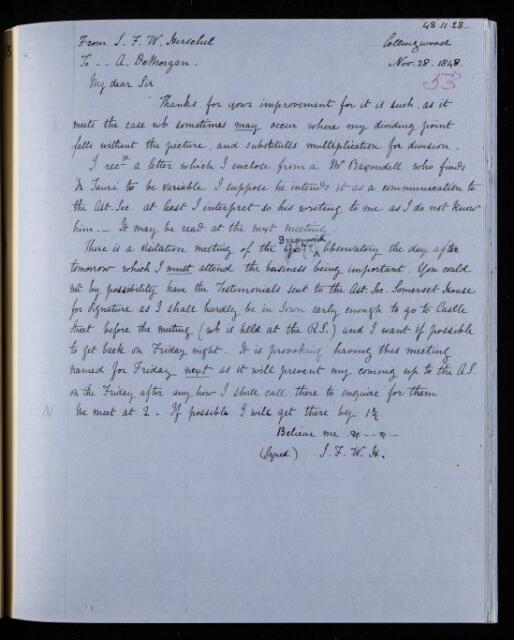 48.11.28.
From J. F. W. Herschel Collingwood
To . . A. DeMorgan. Nov. 28. 1848.
53
My dear Sir
Thanks for your improvement for it is such, as it
meets the case wh sometimes may occur where my dividing point
falls without the picture, and substitutes multiplication for division.
I recd a letter which I enclose from a Mr who finds
Tauri to be variable I suppose he intends it as a communication to
the Ast. Soc. at least I interpret so his writing to me as I do not know
him. — It may be read at the next meeting
There is a visitation meeting of the Greenwich Observatory the day after
tomorrow which I must attend the business being important. You could
not by possibility have the Testimonials sent to the Ast. Soc. Somerset House
for Signature as I shall hardly be in Town early enough to go to Castle
Street before the meeting (wh is held at the R.S.) and I want if possible
to get back on Friday night. It is provoking having this meeting
named for Friday next as it will prevent my coming up to the A.S.
on the Friday after any how I shall call there to enquire for them
We meet at 2 - If possible I will get there by 1½
Believe me &c - - &c -
(Signed) J. F. W. H.